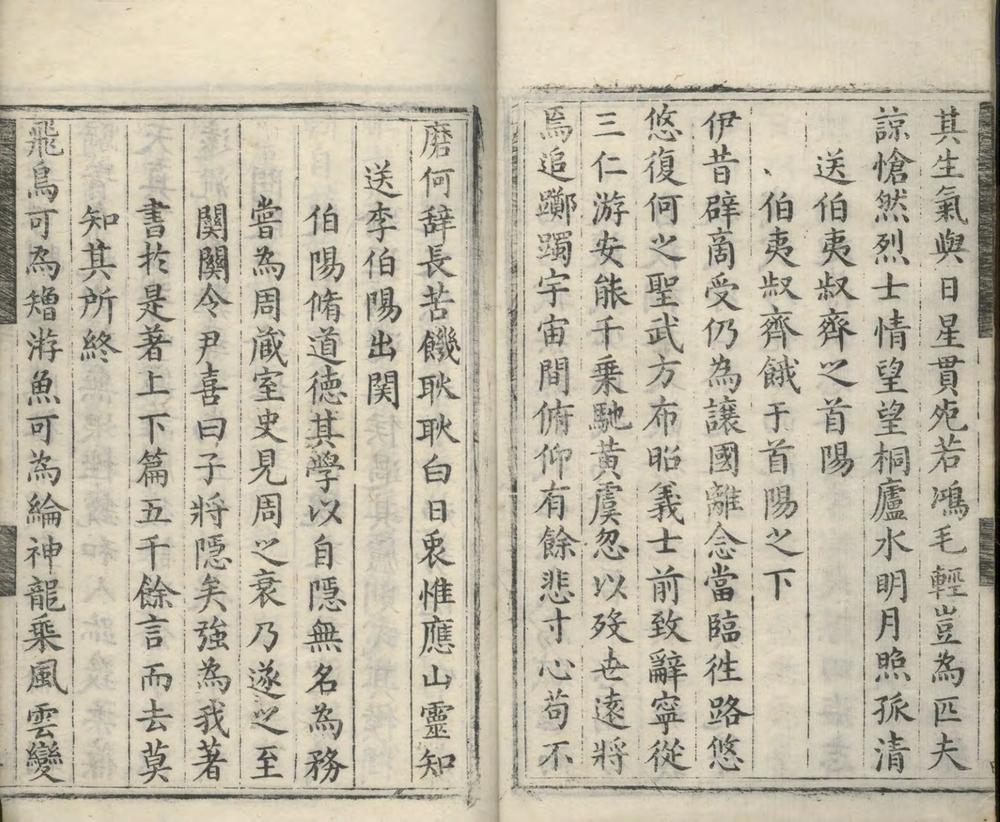 其生氣與日星貫死若鴻毛輕豈為匹夫
諒愴然烈士情望望桐廬水明月照孤清
送伯夷叔齊之首陽
伯夷叔齊餓于首陽之下
伊昔辟商受仍為讓國離念當臨徃路悠
悠復何之聖武方布昭義士前致辭寧從
三仁游安能千乗馳黃虞忽以歿世遠將
焉追躑躅宇宙間俯仰有餘悲寸心苟不
磨何辭長苦饑耿耿白日衷惟應山靈知
送李伯陽出関
伯陽脩道德其學以自隱無名為務
嘗為周蔵室史見周之衰乃遂之至
関關令尹喜曰子將隱矣強為我著
書扵是著上下篇五千餘言而去莫
知其所終
飛鳥可為矰游魚可為綸神龍乘風雲變